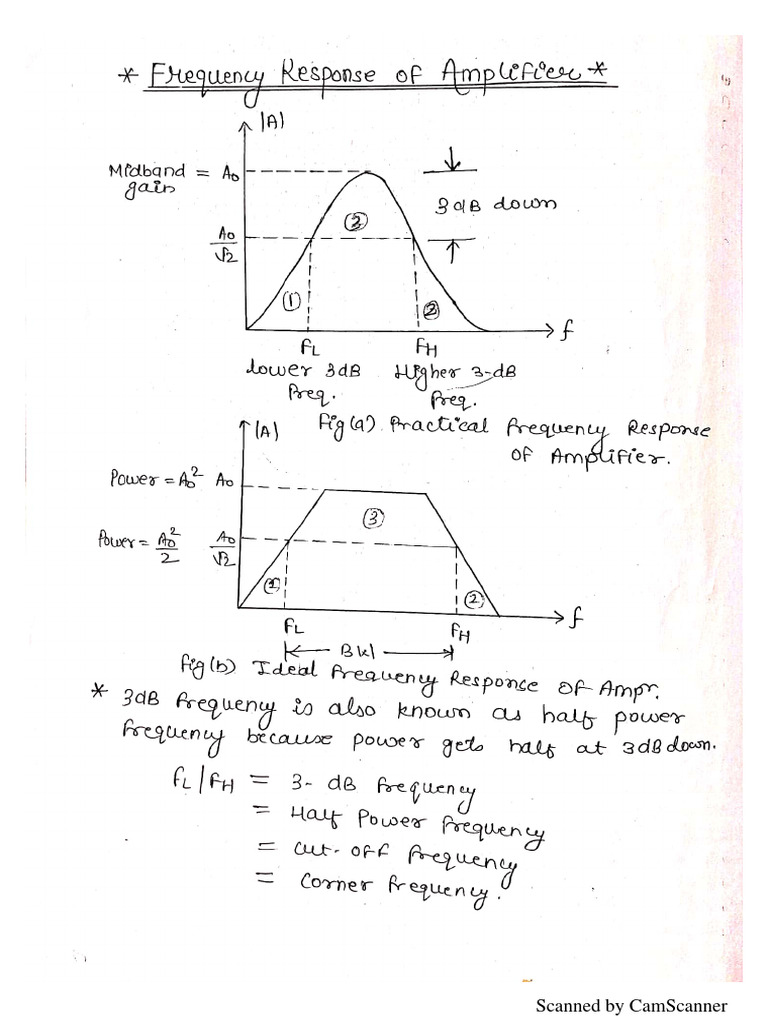 * Frequency Response of Amplifier *
|A|
Midband gain = A₀
3 dB down
A₀/√2
③
①
②
f
fL
fH
lower 3dB freq.
Higher 3-dB freq.
Fig(a) Practical Frequency Response
of Amplifier.
|A|
Power = A₀² A₀
③
Power = A₀²/2 A₀/√2
①
②
f
fL
fH
BW
Fig(b) Ideal Frequency Response of Ampr.
* 3dB frequency is also known as half power
frequency because power gets half at 3dB down.
fL/fH = 3- dB frequency
= Half Power frequency
= Cut-off frequency
= Corner frequency.
Scanned by CamScanner